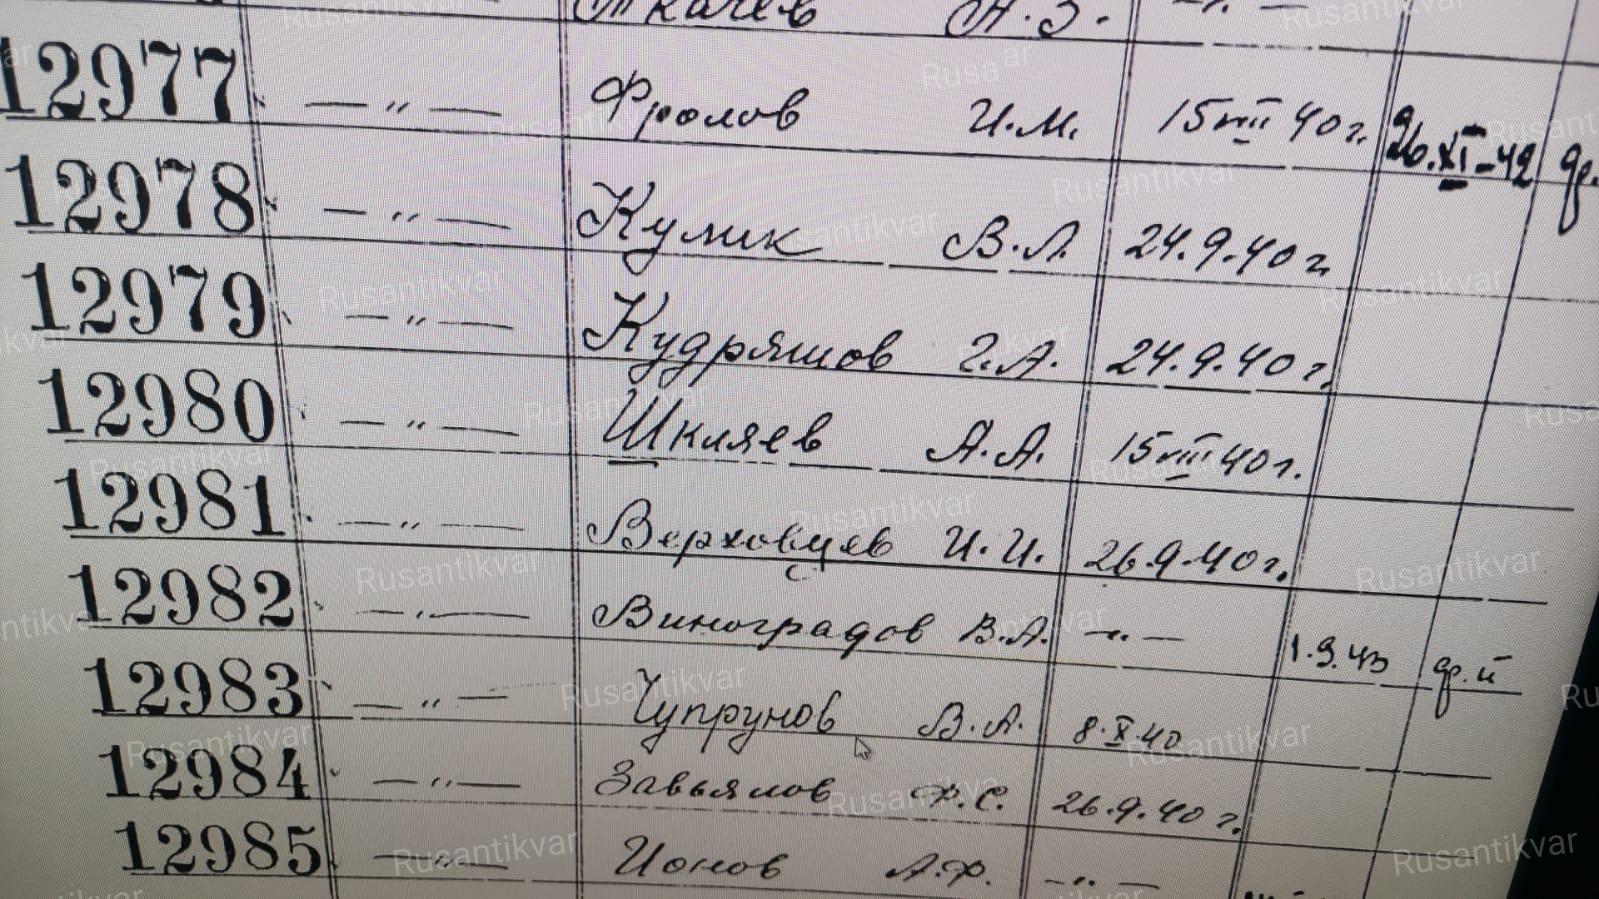 Ткачев А.З. —„—
12977 —„— Фролов И.М. 15 VIII 40 г. 26.XI-42 др.
12978 —„— Кулик В.Л. 24.9.40 г.
12979 —„— Кудряшов Г.А. 24.9.40 г.
12980 —„— Шкляев А.А. 15 VIII 40 г.
12981 —„— Верховцев И.И. 26.9.40 г.
12982 —„— Виноградов В.А. —„— 1.9.43 др. й
12983 —„— Чупрунов В.А. 8.X.40
12984 —„— Завьялов Ф.С. 26.9.40 г.
12985 —„— Ионов А.Ф. —„—